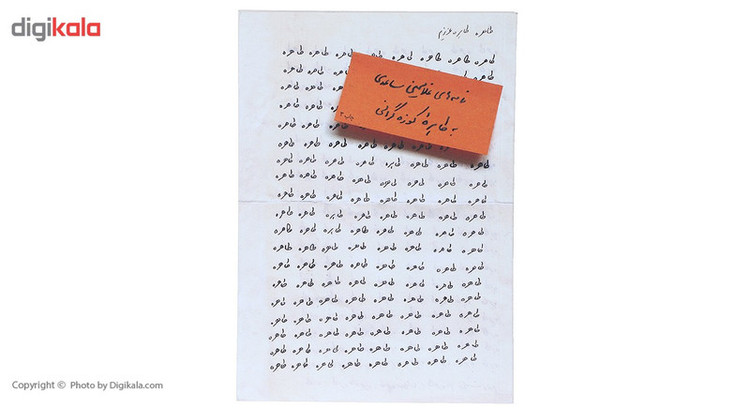 digikala
طاهره، طاهره عزیزم
طاهره طاهره طاهره طاهره طاهره طاهره طاهره طاهره
طاهره طاهره طاهره
طاهره طاهره طاهره
نامه‌های غلامحسین ساعدی
طاهره طاهره
به طاهرهٔ کوزه‌گرانی
چاپ ۲
طاهره طاهره
طاهره طاهره طاهره
طاهره طاهره طاهره طاهره طاهره طاهره طاهره
طاهره طاهره طاهره طاهره طاهره طاهره طاهره طاهره
طاهره طاهره طاهره طاهره طاهره طاهره طاهره طاهره
طاهره طاهره طاهره طاهره طاهره طاهره طاهره طاهره
طاهره طاهره طاهره طاهره طاهره طاهره طاهره طاهره
طاهره طاهره طاهره طاهره طاهره طاهره طاهره طاهره
طاهره طاهره طاهره طاهره طاهره طاهره طاهره طاهره
طاهره طاهره طاهره طاهره طاهره طاهره طاهره طاهره
طاهره طاهره طاهره طاهره طاهره طاهره طاهره طاهره
طاهره طاهره طاهره طاهره طاهره طاهره طاهره طاهره
طاهره طاهره طاهره طاهره طاهره طاهره طاهره طاهره
طاهره طاهره طاهره طاهره طاهره طاهره طاهره طاهره
طاهره طاهره طاهره طاهره طاهره طاهره طاهره طاهره
طاهره طاهره طاهره طاهره طاهره طاهره طاهره طاهره
طاهره طاهره طاهره طاهره طاهره طاهره طاهره طاهره
Copyright © Photo by Digikala.com